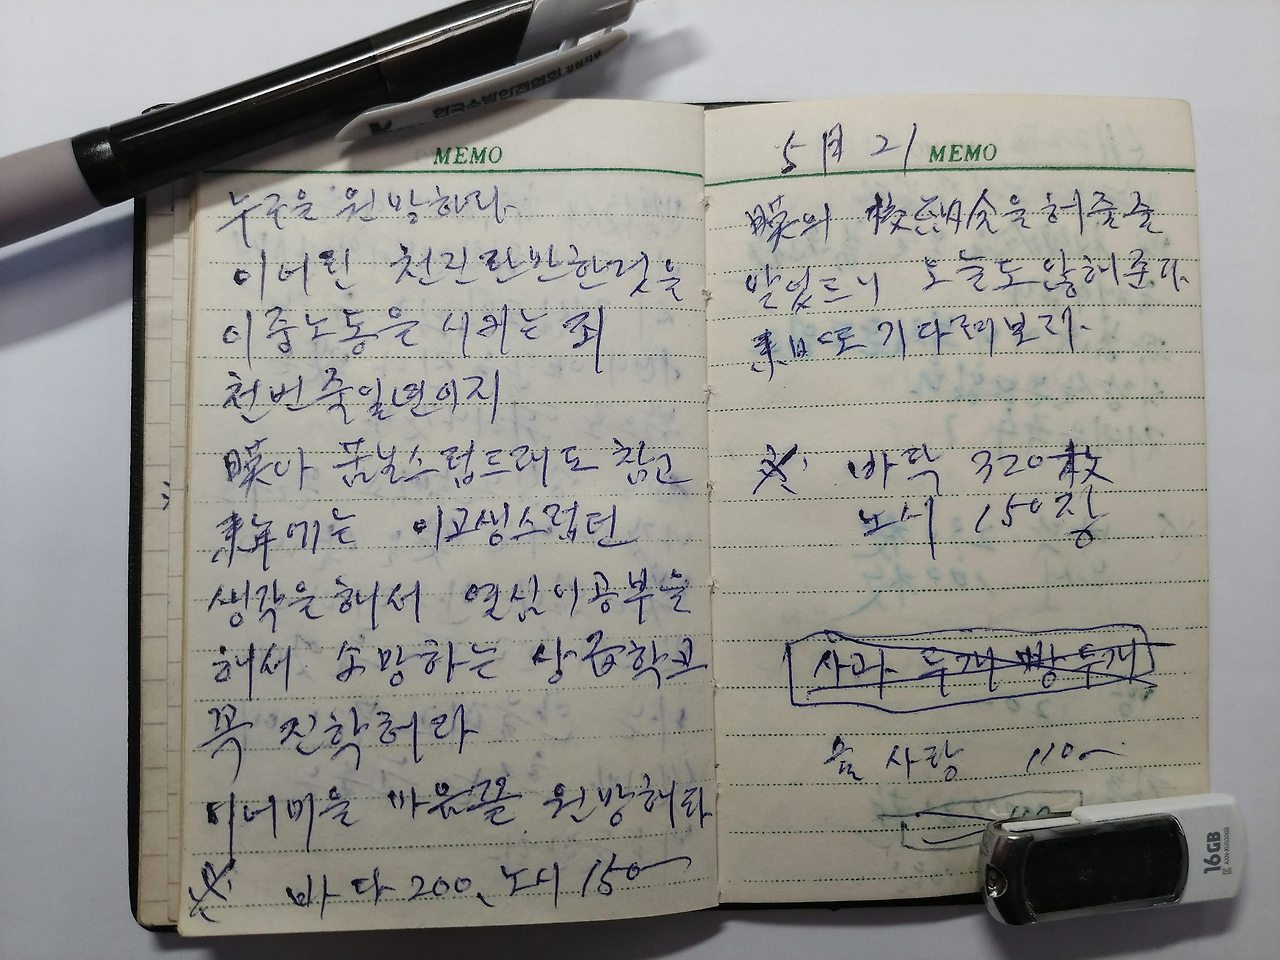 한국소방안전협회 강원지부
MEMO
누구을 원망하랴
이어린 천진란반한것을
이중노동을 시키는 죄
천번죽일년이지
暎아 꿈날스럽드래도 참고
来年에는 이고생스럽던
생각을해서 열심이공부을
해서 소망하는 상급학교
꼭 진학허라
이어미을 마음껏 원망해라
바다 200, 노시 150
5月 21
MEMO
暎의 을허줄줄
알었드니 오늘도않허준다
来日또기다려보래.
바닥 320枚
노시 150장
사과 두개 빵 두개
사랑 110
16GB